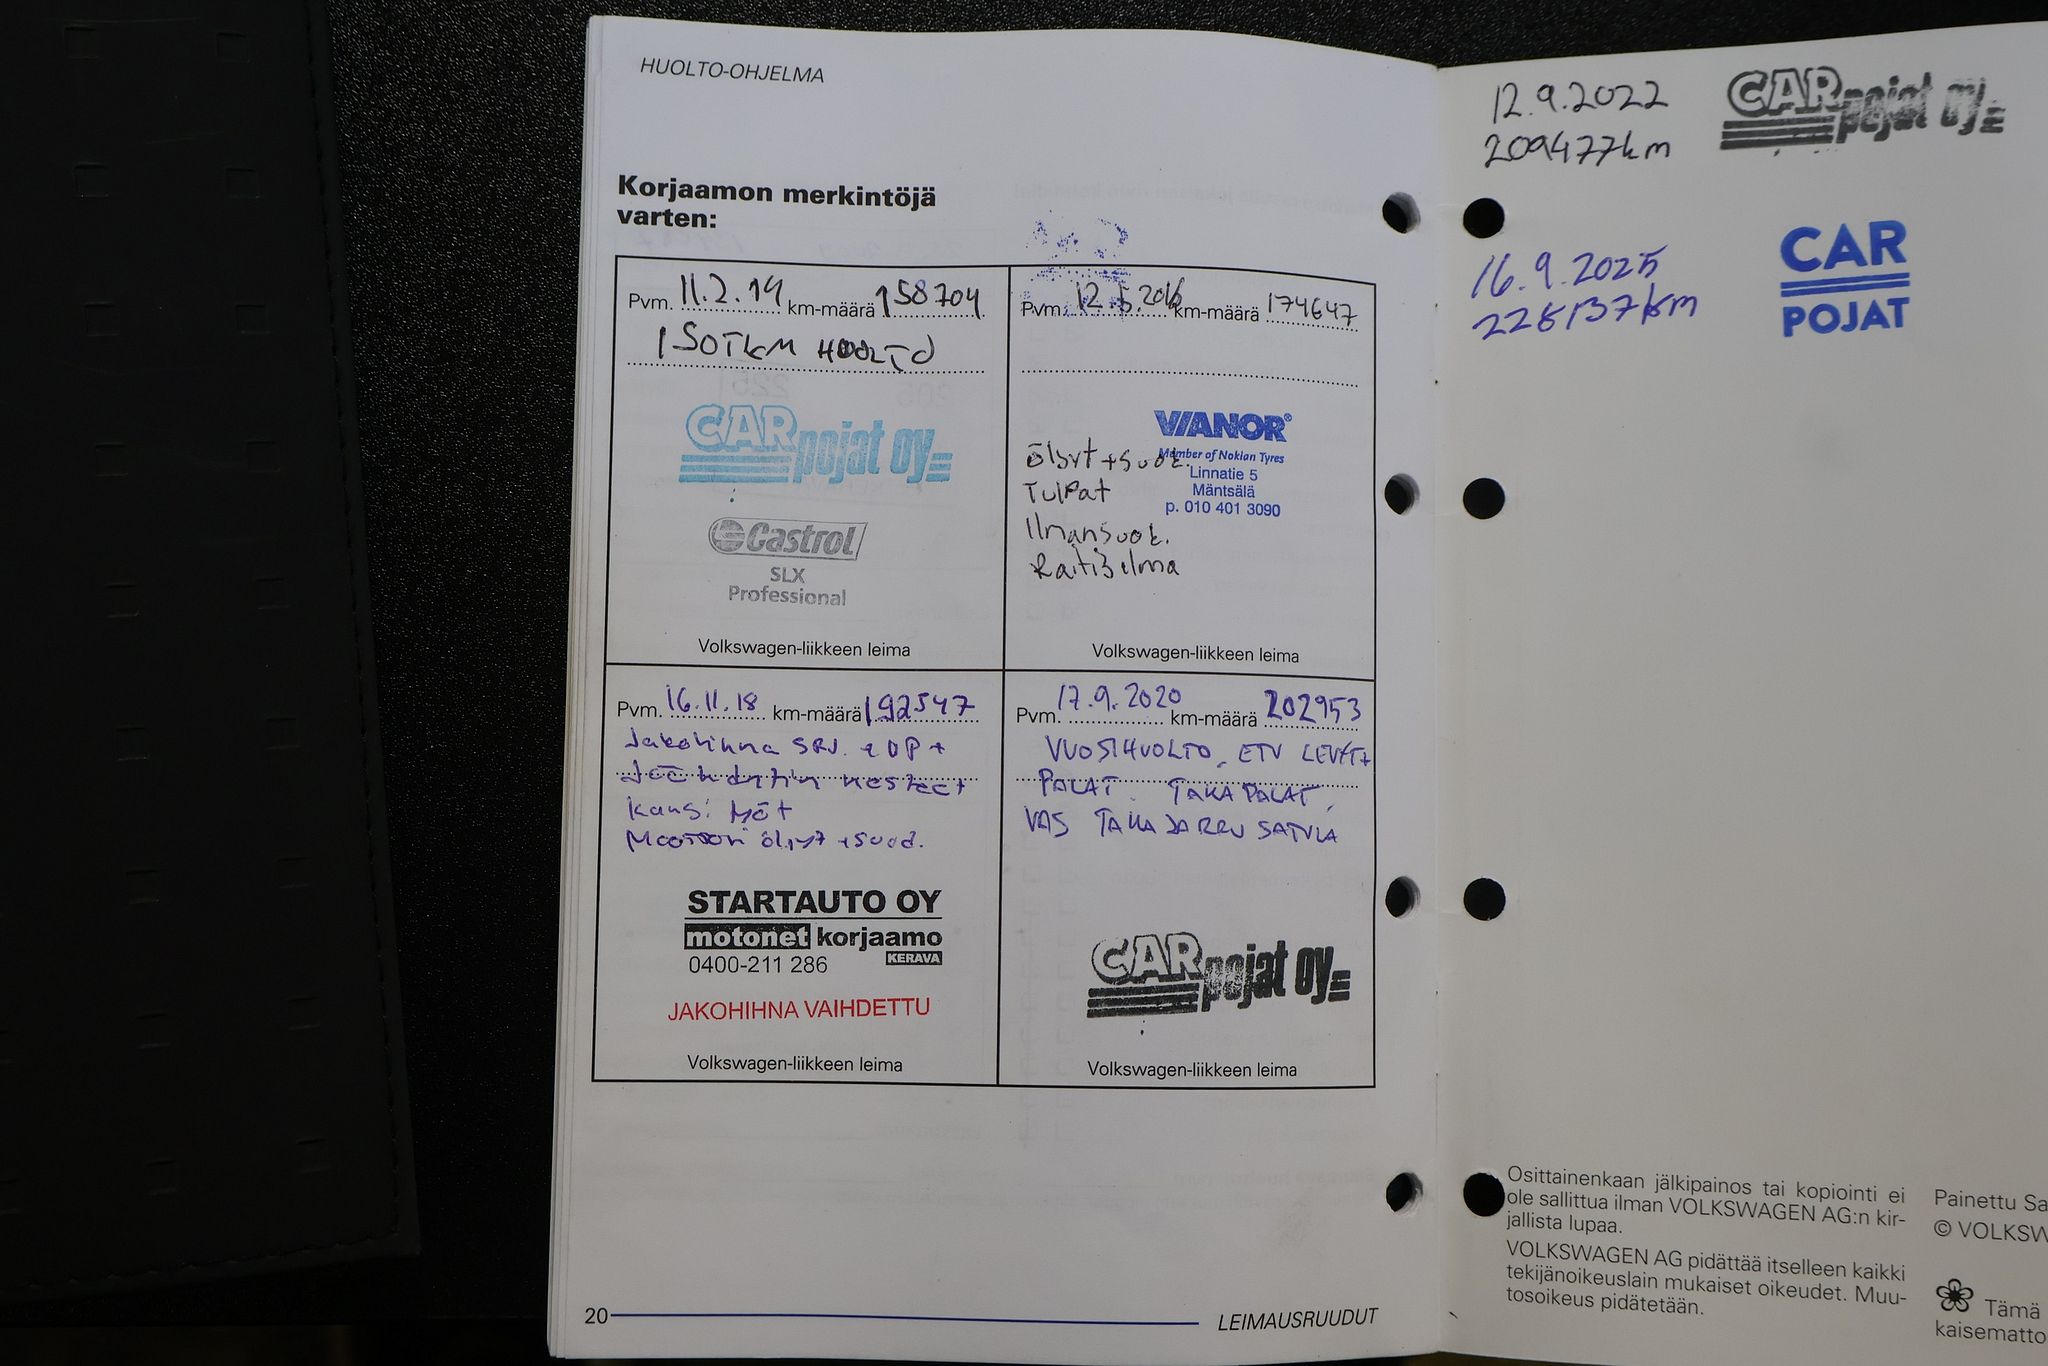 HUOLTO-OHJELMA
Korjaamon merkintöjä
varten:
Pvm. 11.2.14 km-määrä 158704
150TKM HUOLTO
CAR pojat oy
Castrol
SLX
Professional
Volkswagen-liikkeen leima
Pvm. 12.5.2016 km-määrä 174647
VIANOR®
Member of Nokian Tyres
Linnatie 5
Mäntsälä
p. 010 401 3090
Öljyt + suod.
Tulpat
Ilmansuod.
Raitisilma
Volkswagen-liikkeen leima
Pvm. 16.11.18 km-määrä 192547
Jakohihna srj. + VP +
Jäähdytin nesteet
Moottori öljyt + suod.
STARTAUTO OY
motonet korjaamo
KERAVA
0400-211 286
JAKOHIHNA VAIHDETTU
Volkswagen-liikkeen leima
Pvm. 17.9.2020 km-määrä 202953
VUOSIHUOLTO, ETU LEVYT+
PALAT, TAKAPALAT,
VAS TAKAJARRU SATULA
CAR pojat oy
Volkswagen-liikkeen leima
20
LEIMAUSRUUDUT
12.9.2022
209477km
CAR pojat oy
16.9.2025
CAR
POJAT
Osittainenkaan jälkipainos tai kopiointi ei
ole sallittua ilman VOLKSWAGEN AG:n kir-
jallista lupaa.
VOLKSWAGEN AG pidättää itselleen kaikki
tekijänoikeuslain mukaiset oikeudet. Muu-
tosoikeus pidätetään.
Painettu Sa
© VOLKSW
Tämä
kaisematto